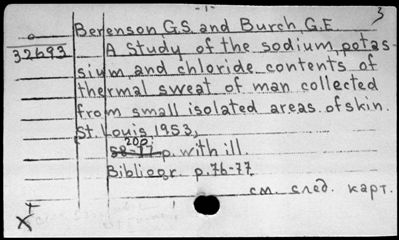 -1-
3
Berenson G.S. and Burch G.E
32693
A study of the sodium, potas-
sium, and chloride contents of
thermal sweat of man collected
from small isolated areas of skin.
St. Louis 1953,
200
58-77 p. with ill.
Bibliogr p. 76-77
см. след. карт.